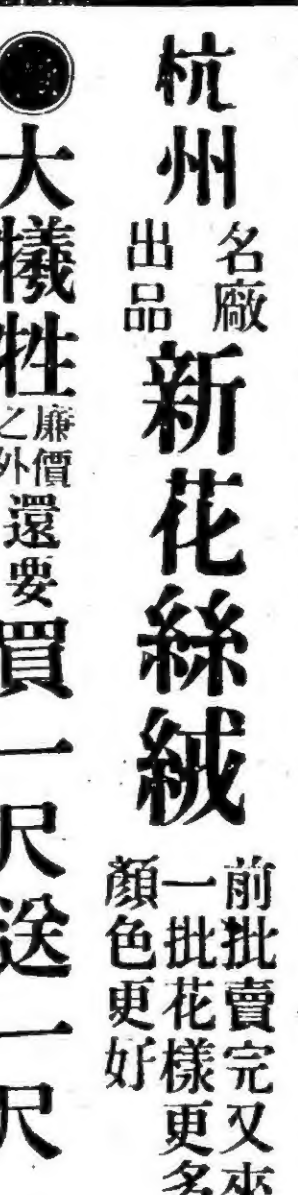 杭州
名廠
出品
新花絲絨
前批賣完又來
一批花樣更多
顏色更好
大犧牲
廉價
之外
還要
買一尺送一尺